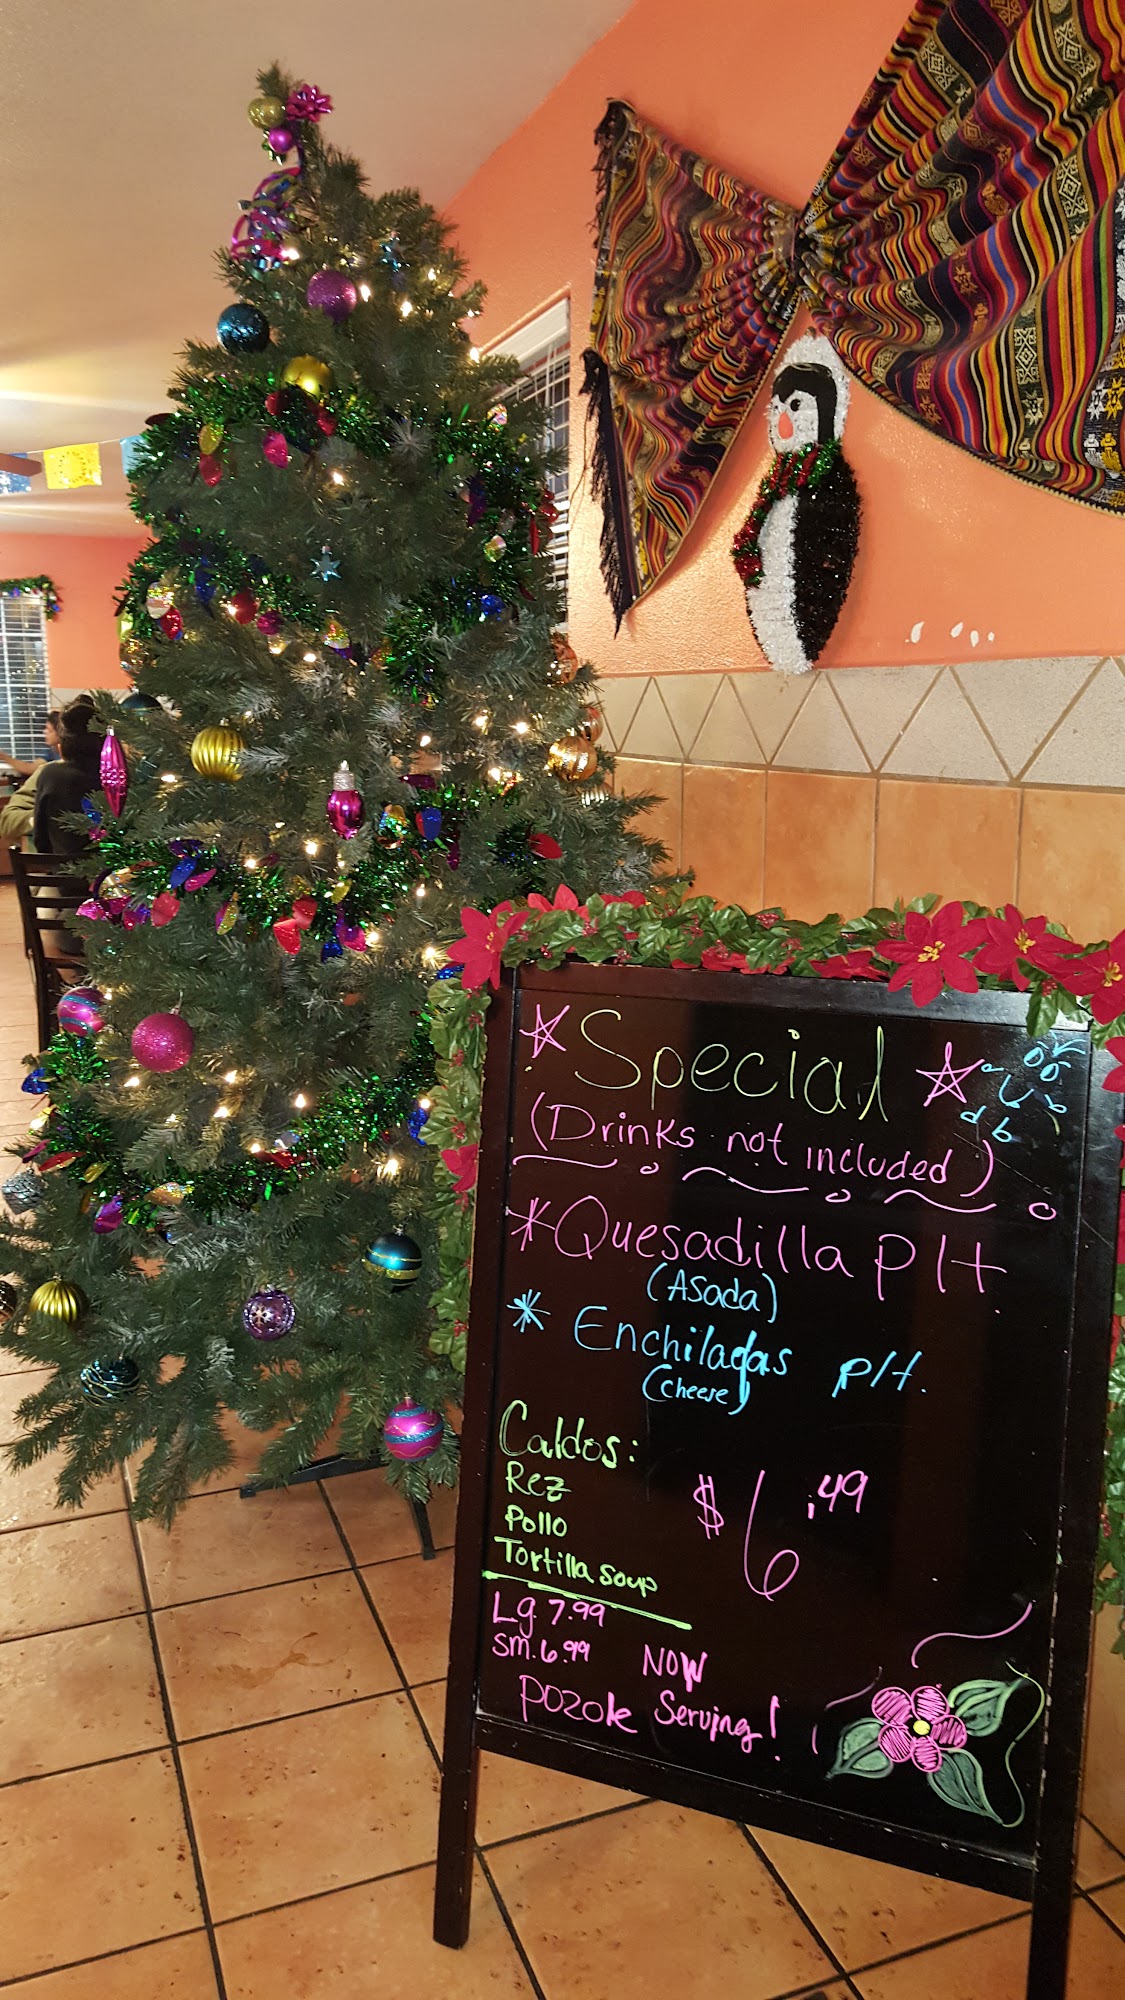 Special
(Drinks not included)
*Quesadilla plt.
(Asada)
* Enchiladas plt.
(cheese)
Caldos:
Rez
Pollo
Tortilla soup
$6.49
Lg. 7.99
sm. 6.99
NOW
Pozole Serving!